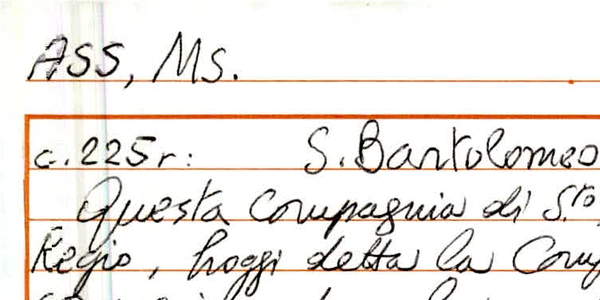 ASS, Ms.
c. 225r: S. Bartolomeo
Questa Compagnia di S.to
Regio, hoggi detta la Comp